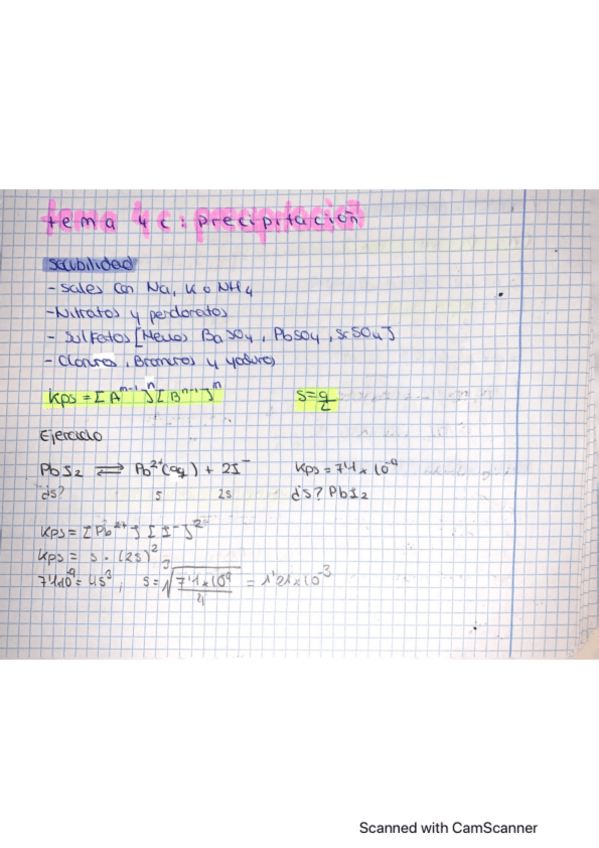 tema 4c: precipitación
Solubilidad
- Sales con Na, K o NH4
- Nitratos y percloratos
- Sulfatos [Menos BaSO4, PbSO4, SrSO4]
- Cloruros, Bromuros y yoduros
Kps = [A^m-1]^n [B^n-1]^m    s = g/L
Ejercicio
PbI2 ⇌ Pb²⁺(aq) + 2I⁻    Kps = 7'1 x 10⁻⁹
¿s?    s    2s    ¿s? PbI2
Kps = [Pb²⁺] [I⁻]²
Kps = s · (2s)²
7'1x10⁻⁹ = 4s³, s = ³√(7'1 x 10⁻⁹ / 4) = 1'21 x 10⁻³
Scanned with CamScanner